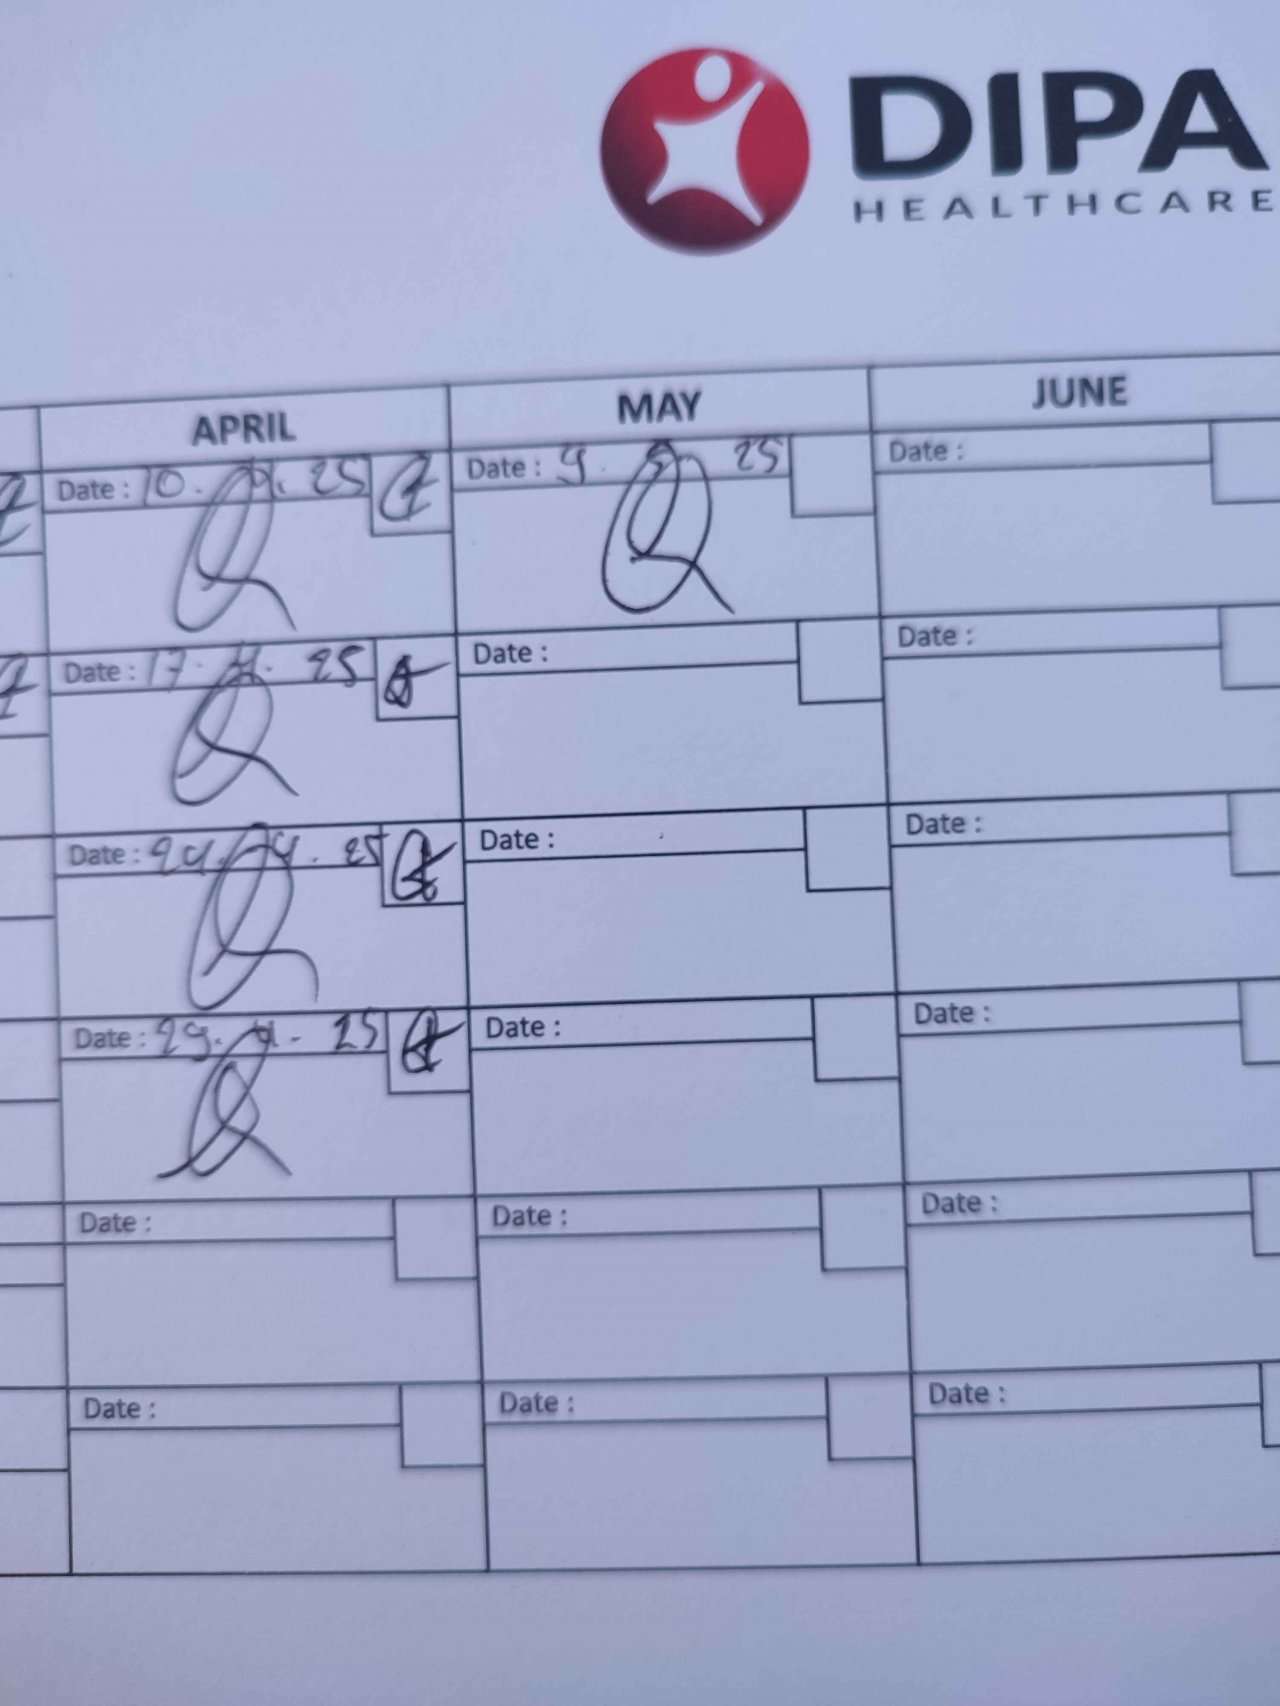 DIPA
HEALTHCARE
APRIL MAY JUNE
Date : 10. 4. 25 Date : 9. 5. 25 Date :
Date : 17. 4. 25 Date : Date :
Date : 24. 4. 25 Date : Date :
Date : 29. 4. 25 Date : Date :
Date : Date : Date :
Date : Date : Date :